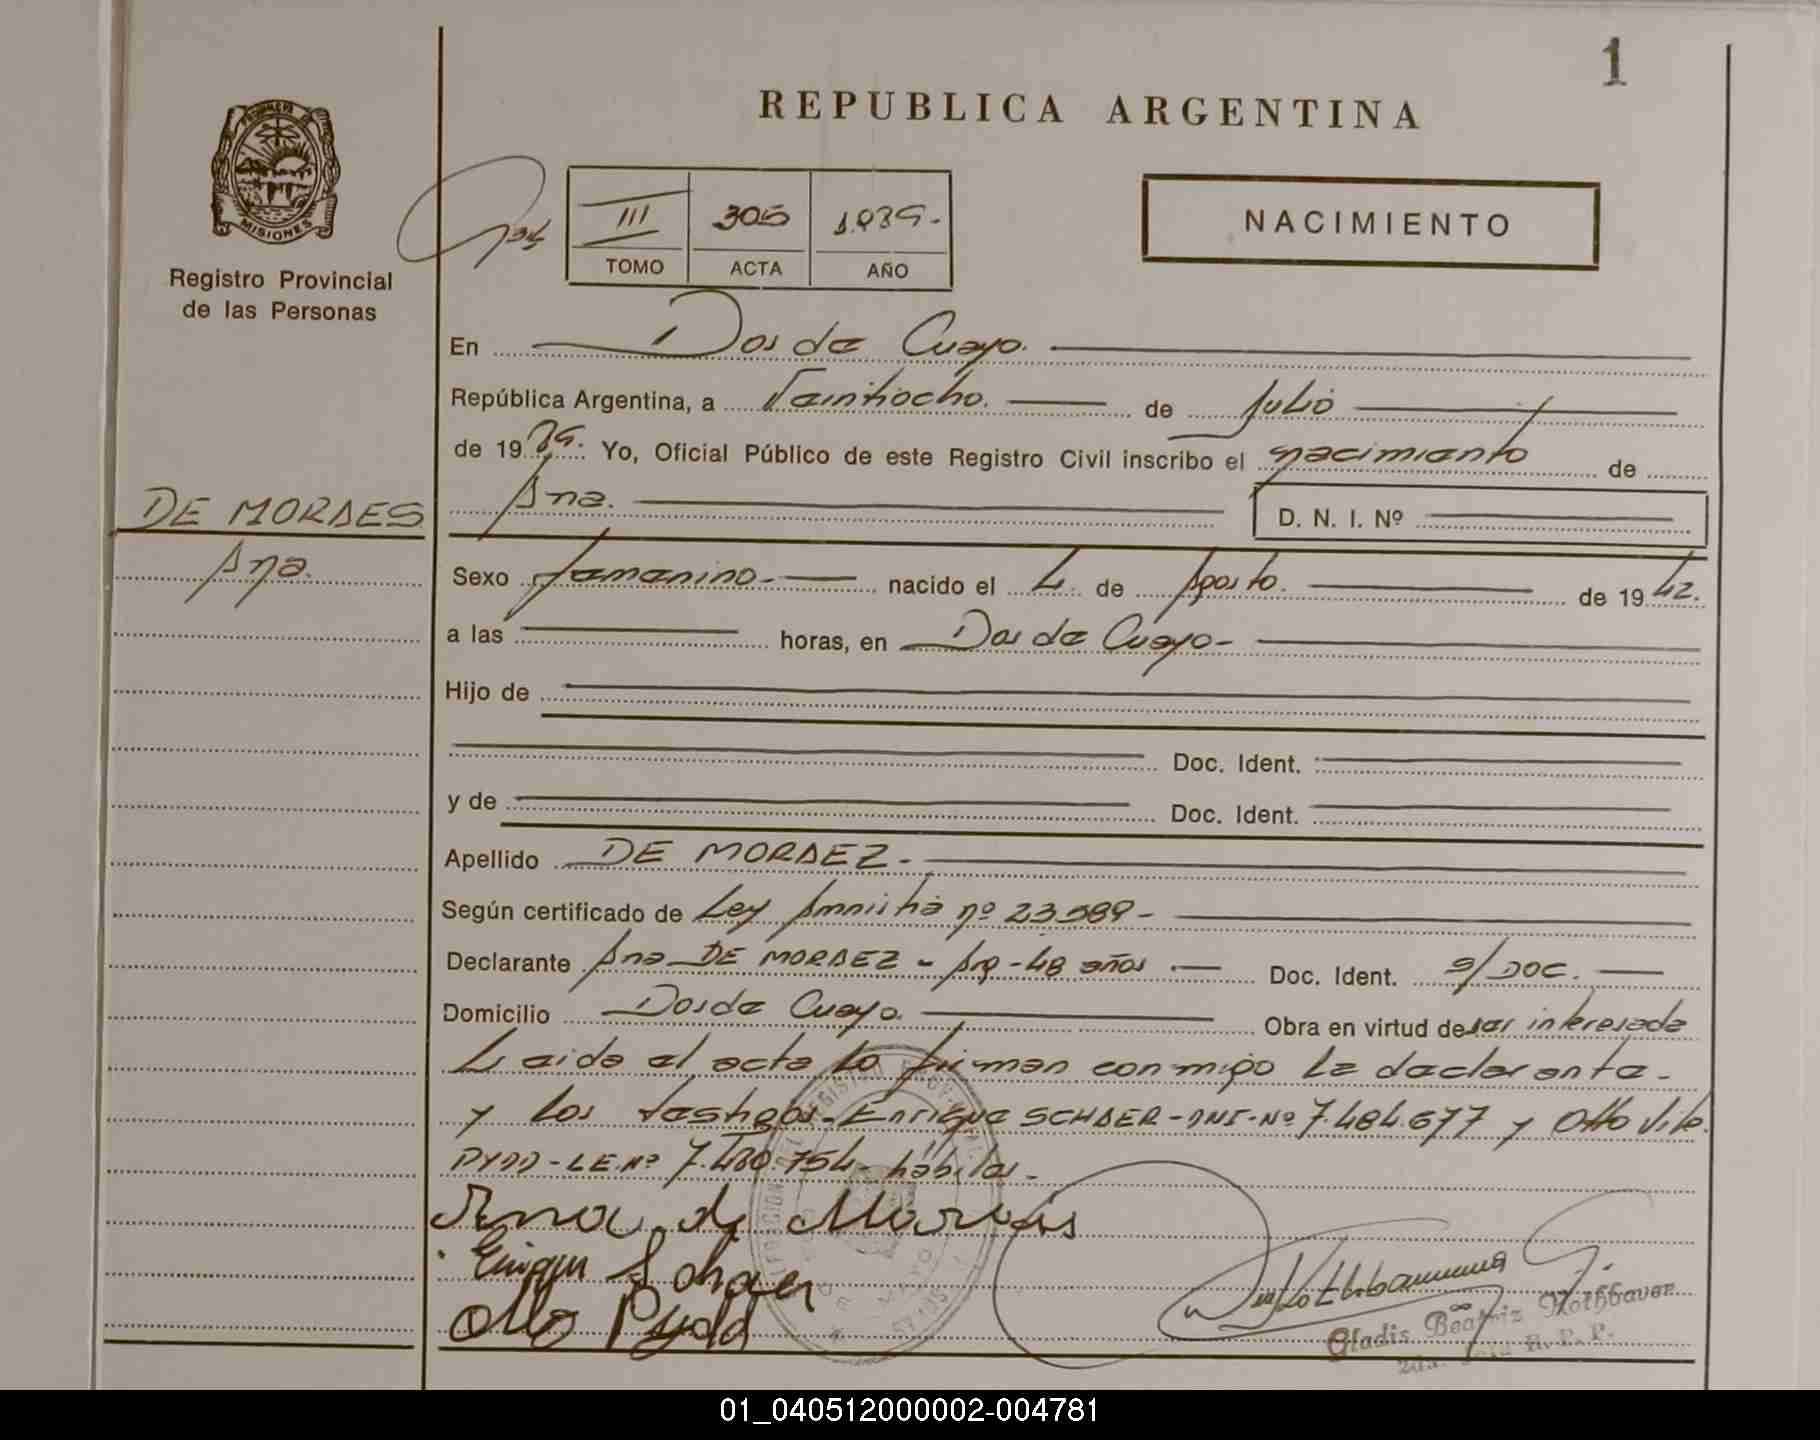 1
REPUBLICA ARGENTINA
MISIONES
Registro Provincial
de las Personas
III 305 1989.-
TOMO ACTA AÑO
NACIMIENTO
En Dos de Mayo.
República Argentina, a Veintiocho. de Julio
de 1989. Yo, Oficial Público de este Registro Civil inscribo el nacimiento de
DE MORAES
Ana.
Ana.
D. N. I. Nº
Sexo femenino.- nacido el 4. de Agosto. de 1942.
a las horas, en Dos de Mayo-
Hijo de
Doc. Ident.
y de Doc. Ident.
Apellido DE MORAEZ.-
Según certificado de Ley Amnistia nº 23.589-
Declarante Ana DE MORAEZ - Arg - 48 años .- Doc. Ident. s/DOC.
Domicilio Dos de Mayo. Obra en virtud de ser interesada
Leida el acta la firman conmigo la declarante-
y los testigos- Enrique SCHAER-DNI-Nº 7.484.677 y Otto
PYDD-LE.Nº 7.480.754- hábiles.-
Ana de Moraes
Schaer
Otto Pydd
Gladis Beatriz Rothbauer
R. P. P.
01_040512000002-004781